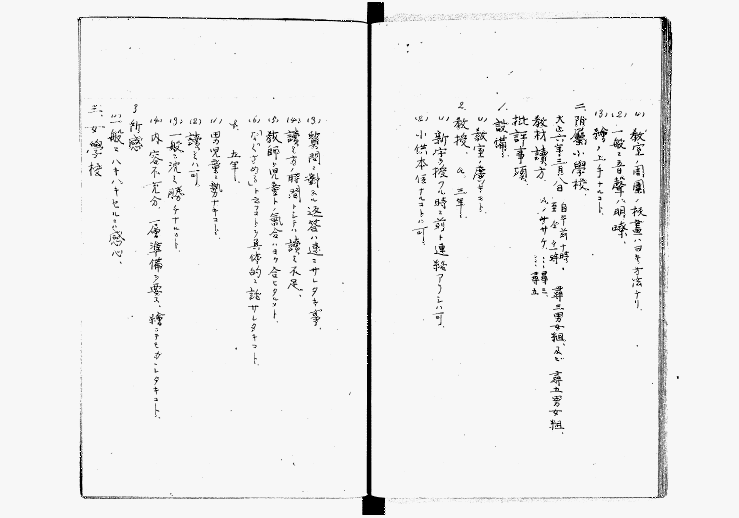 (1) 教室ノ周圍ノ板畫ハヨキ方法ナリ、
(2) 一般ニ音聲ハ明瞭、
(3) 繪ノ上手ナルコト、
二、附屬小學校、
大正六年三月八日 自午前十時、至全十時、 尋三男女組、及ビ 尋五男女組、
教材 讀方、
批評事項、
1. 設備、
(1) 教室ノ廣キコト、
2. 教授、 a. 三年、
(1) 新字ヲ授クル時ニ前ノ連絡アリシハ可、
(2) 小供本位ナルコトハ可、
(3) 質問ニ對スル返答ハ速ニサレタキ事、
(4) 讀ミ方ノ時間トシテハ讀ミ不足、
(5) 教師ト兒童トノ氣合ハヨク合ヒタルコト、
(6) なぐさめるトユフコトヲ具体的ニ話サレタキコト、
b. 五年、
(1) 男兒童ニ勢ナキコト、
(2) 讀ミハ可、
(3) 一般ニ沈ミ勝チナルコト、
(4) 内容不充分、一層準備ヲ要ス、繪ニテモ
3 所感
(1) 一般ニハキハキセルニハ感心、
三、女學校